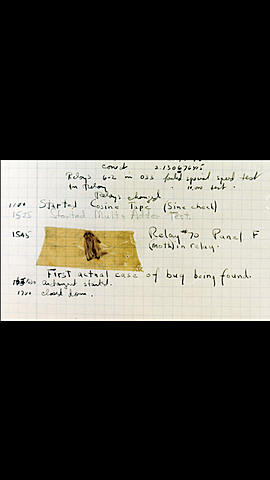 correct 2.130676415
Relays 6-2 in 033 failed special speed test
in Relay " 11.000 test.
Relays changed
1100 Started Cosine Tape (Sine check)
1525 Started Multi Adder Test.
1545 Relay #70 Panel F
(moth) in relay.
First actual case of bug being found.
antangent started.
1700 closed down.